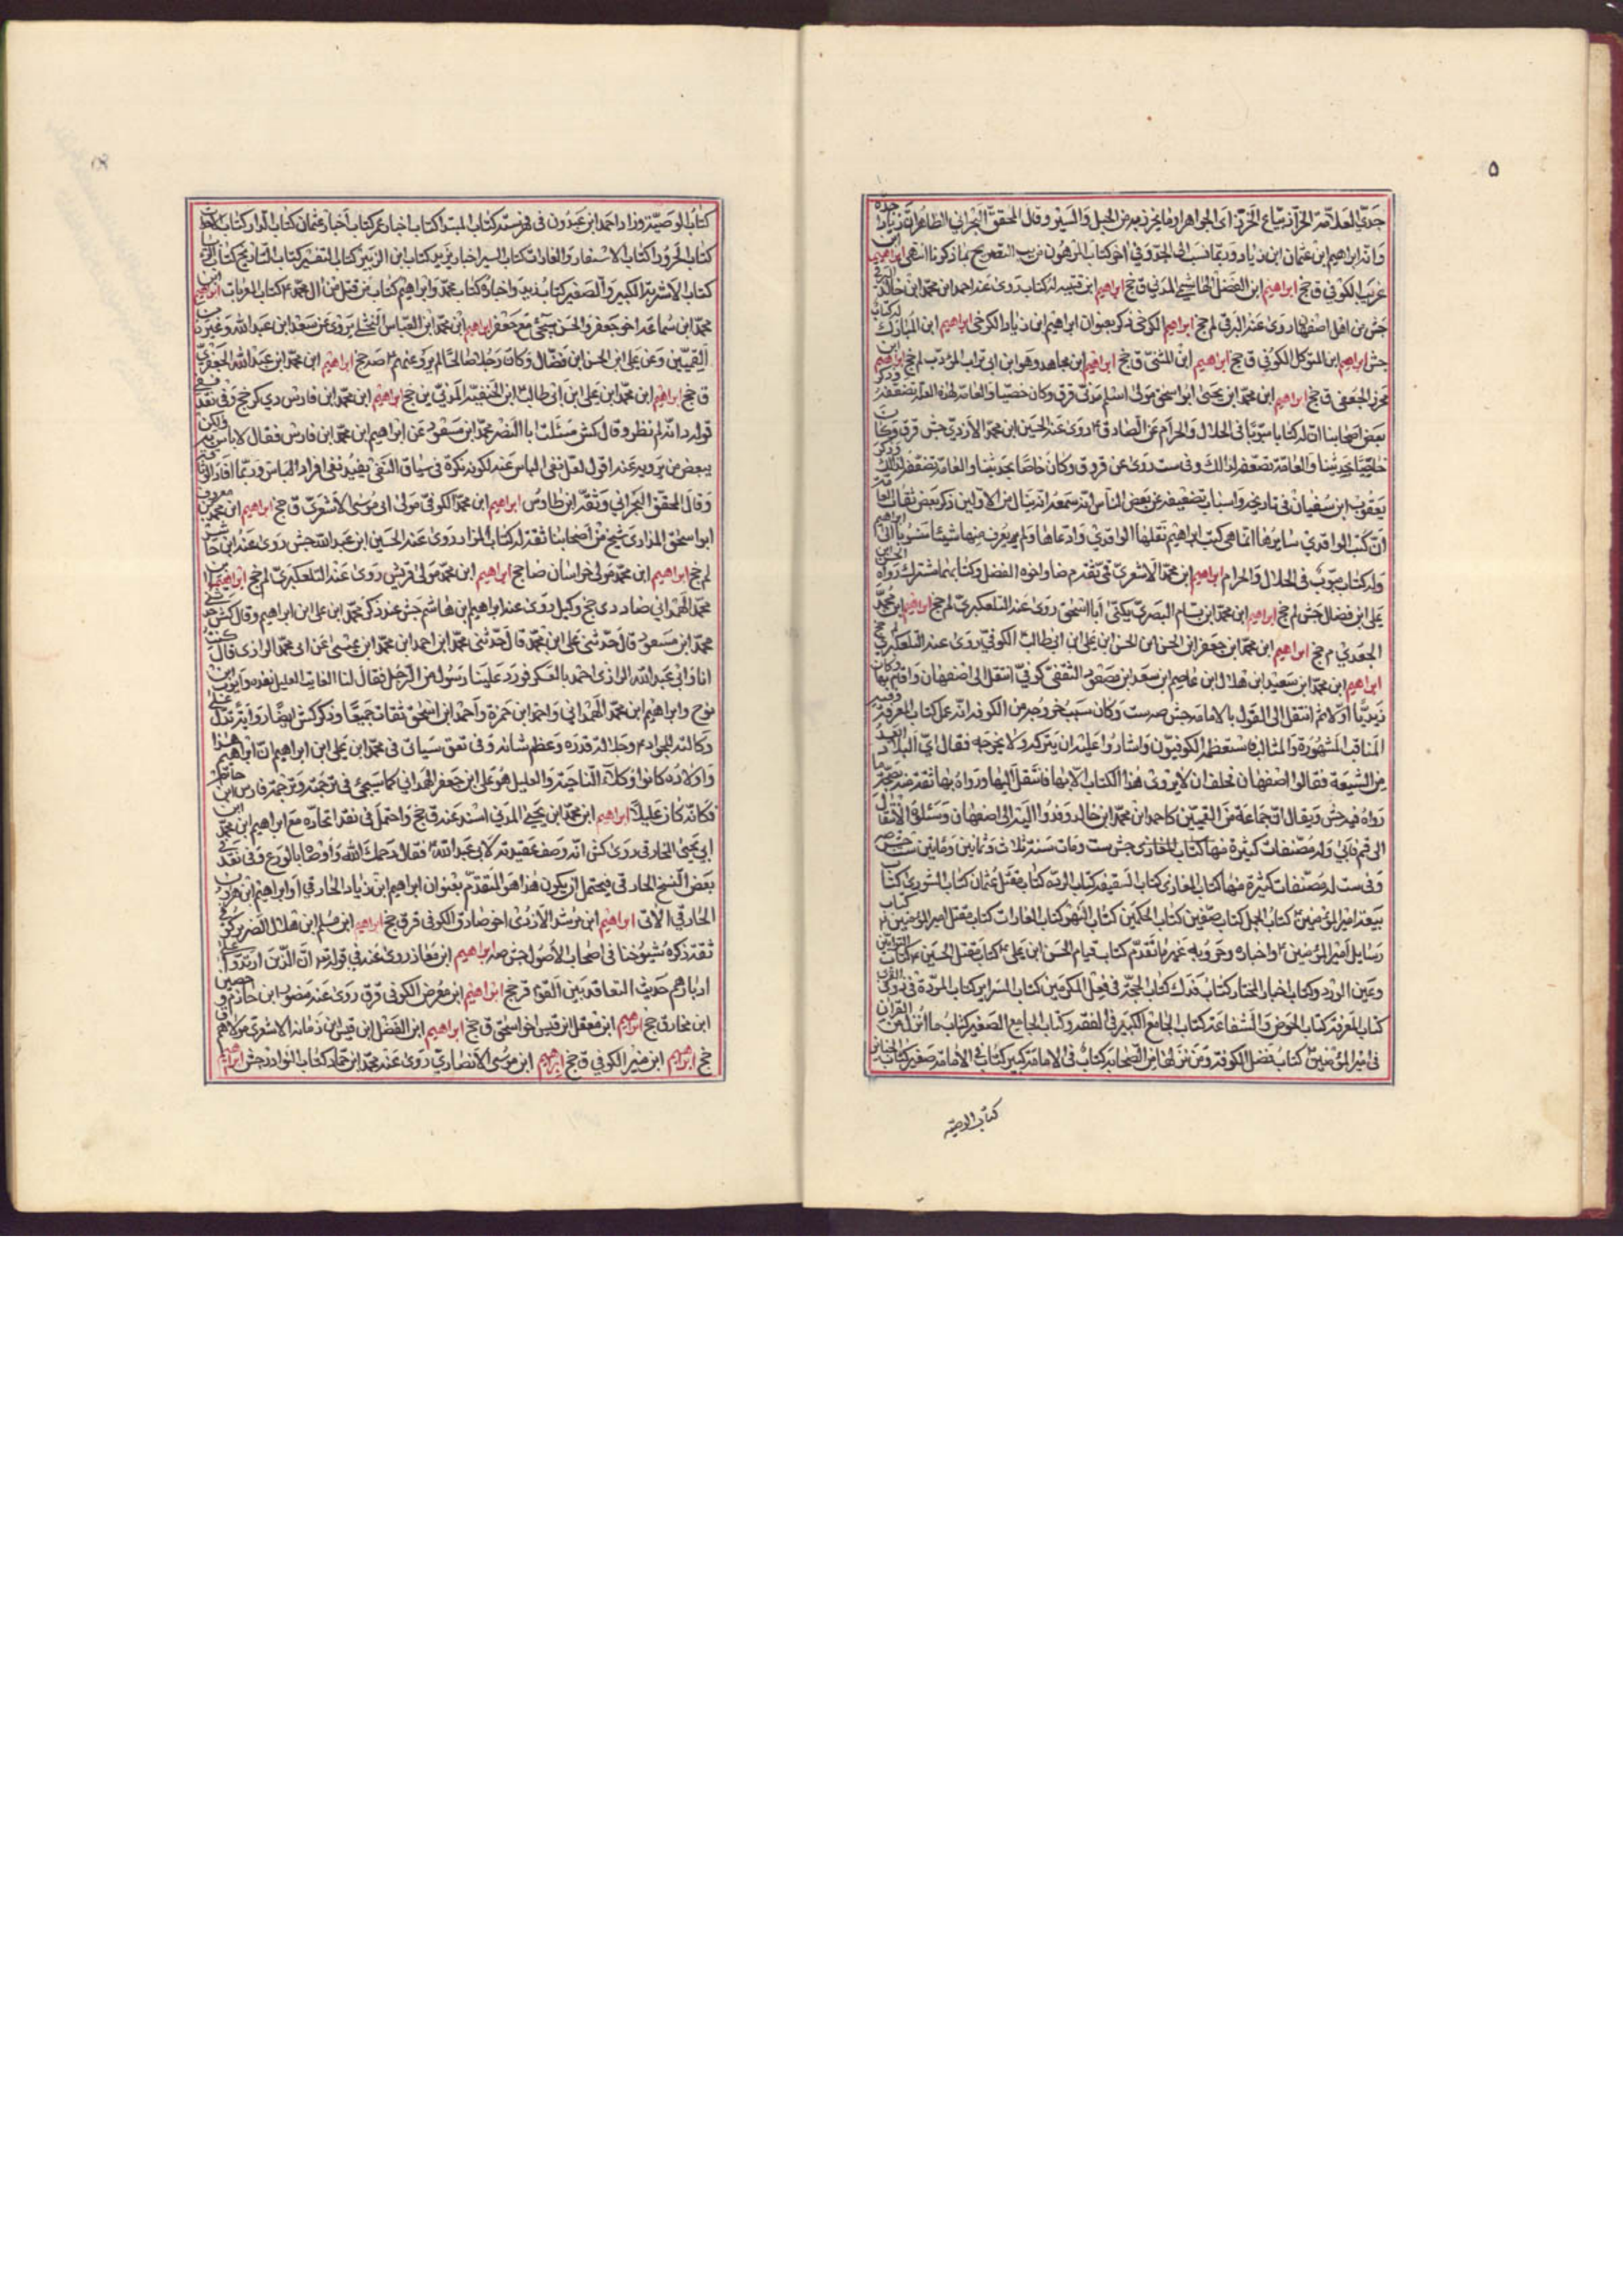 ۵
جدّي العلامة الخزاز بياع الخرز اى الجواهر او ما يخرز به من الحبل والسير وقال المحقق البحراني الظاهر ان زيادا جده
وانه ابراهيم ابن عثمان ابن زياد وربما نسب الى الجد وفي اخر كتاب المرهون من يب التصريح بما ذكرنا انتهى ابراهيم ابن
عربي الكوفي ق جخ ابراهيم ابن الفضل الهاشمي المدني ق جخ ابراهيم ابن قتيبه له كتاب روى عنه احمد ابن محمد ابن خالد البرقي
جش من اهل اصفهان روى عنه البرقي لم جخ ابراهيم الكرخي ذكر بعنوان ابراهيم ابن زياد الكرخي ابراهيم ابن المبارك له كتاب
جش ابراهيم ابن المتوكل الكوفي ق جخ ابراهيم ابن المثنى ق جخ ابراهيم ابن مجاهد وهو ابن ابي تراب المؤدب لم جخ ابراهيم ابن
محرز الجعفي ق جخ ابراهيم ابن محمد ابن يحيى ابو اسحق مولى اسلم مدني قرق وكان خصيصا والعامة لهذه العلة تضعفه وذكر
بعض اصحابنا ان له كتابا مبوبا في الحلال والحرام عن الصادق ع روى عنه الحسين ابن محمد الازدي جش قرق وكان
خاصيا بحديثنا والعامة تضعفه لذلك وفى ست روى عن قروق وكان خاصا بحديثنا والعامة تضعفه لذلك وذكر
يعقوب ابن سفيان في تاريخه واسباب تضعيفه عن بعض الناس انه سمعه ينال من الاولين ذكر بعض ثقات العامة
ان كتب الواقدي سايرها انما هى كتب ابراهيم نقلها الواقدي وادعاها ولم يعرف منها شيئا منسوبا الى ابراهيم
وله كتاب مبوب في الحلال والحرام ابراهيم ابن محمد الاشعري قمي تقدم ضا واخوه الفضل وكتابهما مشترك رواه الحسن ابن
على ابن فضال جش لم جخ ابراهيم ابن محمد ابن بسام البصري يكنى ابا اسحق روى عنه التلعكبري لم جخ ابراهيم ابن محمد
الجعدي م جخ ابراهيم ابن محمد ابن جعفر ابن الحسن ابن الحسن ابن على ابن ابى طالب الكوفي روى عنه التلعكبري لم جخ
ابراهيم ابن محمد ابن سعيد ابن هلال ابن عاصم ابن سعد ابن مسعود الثقفي كوفي انتقل الى اصفهان واقام بها وكان
زيديا اولا ثم انتقل الى القول بالامامة جش صه ست وكان سبب خروجه من الكوفه انه عمل كتاب المعرفة وفيه
المناقب المشهورة والمثالب فاستعظمه الكوفيون واشاروا عليه ان يتركه ولا يخرجه فقال اى البلاد ابعد
من الشيعة فقالوا اصفهان فحلف ان لا يروى هذا الكتاب الا بها فانتقل اليها ورواه بها ثقة منه بصحة ما
رواه فيه جش ويقال ان جماعة من القميين كاحمد ابن محمد ابن خالد وفدوا اليه الى اصفهان وسئلوه الانتقال
الى قم فابى وله مصنفات كثيرة منها كتاب المغازى جش ست ومات سنة ثلاث وثمانين ومائتين ست جش صه
وفى ست له مصنفات كثيرة منها كتاب المغازى كتاب السقيفه كتاب الرده كتاب مقتل عثمان كتاب الشورى كتاب
بيعة امير المؤمنين كتاب الجمل كتاب صفين كتاب الحكمين كتاب النهر كتاب الغارات كتاب مقتل امير المؤمنين ع كتاب
رسايل امير المؤمنين ع واخباره وحروبه غير ما تقدم كتاب قيام الحسن ابن على ع كتاب مقتل الحسين ع كتاب التوابين
وعين الورد وكتاب اخبار المختار كتاب فدك كتاب الحجة في فعل المكرمين كتاب السراير كتاب المودة في ذوى القربى
كتاب المعرفة كتاب الحوض والشفاعة كتاب الجامع الكبير فى الفقه وكتاب الجامع الصغير كتاب ما انزل من القرآن
فى امير المؤمنين كتاب فضل الكوفة ومن نزلها من الصحابة كتاب فى الامامة كبير كتاب فى الامامة صغير كتاب الجنايز
كتاب الوصية
كتاب الوصية وزاد احمد ابن عبدون فى فهرسته كتاب المبتدا كتاب اخبار عمر كتاب اخبار عثمان كتاب الدار كتاب
كتاب الحرورا كتاب الاسفار والغارات كتاب السير اخبار يزيد كتاب ابن الزبير كتاب التفسير كتاب التاريخ كتاب الرؤيا
كتاب الاشربة الكبير والصغير كتاب زيد واخباره كتاب محمد وابراهيم كتاب من قتل من ال محمد ع كتاب المعربات ابراهيم ابن
محمد ابن سماعة اخو جعفر والحسن سيجئ مع جعفر ابراهيم ابن محمد ابن العباس الختلي يروى عن سعد ابن عبد الله وغيره من
القميين وعن على ابن الحسن ابن فضال وكان رجلا صالحا لم يرو عنهم ع صه جخ ابراهيم ابن محمد ابن عبد الله الجعفرى
ق جخ ابراهيم ابن محمد ابن على ابن ابى طالب ع ابن الحنفية المدني ين جخ ابراهيم ابن محمد ابن فارس دي كر جخ وفى نقد
قوله انه لم نظر وقال كش مسئلت ابا النضر محمد ابن مسعود عن ابراهيم ابن محمد ابن فارس فقال لا باس به ولكن
ببعض من يرويه عنه اقول لعل نفى الباس عنه لكونه نكرة في سياق النفى يفيد نفى افراد الباس وربما افاد التوثيق
وقال المحقق البحراني وثقه ابن طاوس ابراهيم ابن محمد الكوفي مولى ابى موسى الاشعرى ق جخ ابراهيم ابن محمد ابن معروف
ابو اسحق المزارى شيخ من اصحابنا ثقة له كتاب المزار روى عنه الحسين ابن عبد الله جش روى عنه ابن حاشر
لم جخ ابراهيم ابن محمد مولى خراسان ضا جخ ابراهيم ابن محمد مولى قريش روى عنه التلعكبري لم جخ ابراهيم ابن
محمد الهمداني ضا د دى جخ وكيل روى عنه ابراهيم ابن هاشم جش عند ذكر محمد ابن على ابن ابراهيم وقال كش حدثني
محمد ابن مسعود قال حدثني على ابن محمد قال حدثني محمد ابن احمد ابن محمد ابن عيسى عن ابى محمد الرازى قال كنت
انا وابى عبد الله الرازى احمد بالعسكر فورد علينا رسول من الرجل فقال لنا الغايب العليل ثقة وايوب ابن
نوح وابراهيم ابن محمد الهمداني واحمد ابن حمزة واحمد ابن اسحق ثقات جميعا وذكر كش ايضا رواية تدل على
وكالته للجواد ع وجلالة قدره وعظم شانه وفى تعق سياتى فى محمد ابن على ابن ابراهيم ان ابراهيم هذا
واولاده كانوا وكلاء الناحية والعليل هو على ابن جعفر الهمداني كما سيجئ فى ترجمته وترجمة فارس ابن حاتم
فكانه كان عليلا ابراهيم ابن محمد ابن يحيى المدني اسند عنه ق جخ واحتمل فى نقد اتحاده مع ابراهيم ابن محمد ابن
ابى يحيى الخارقى روى كش انه وصف عقيدته لابى عبد الله ع فقال رحمك الله واوصاه بالورع وفى نقد فى
بعض النسخ الحارقى فيحتمل ان يكون هذا هو المتقدم بعنوان ابراهيم ابن زياد الخارقي او ابراهيم ابن هرون
الخارقي الاتى ابراهيم ابن مرثد الازدى اخو صادق الكوفي قرق جخ ابراهيم ابن مسلم ابن هلال الضرير كوفى
ثقة ذكره شيوخنا فى اصحاب الاصول جش صه ابراهيم ابن معاذ روى عنه في قوله تعالى ان الذين ارتدوا على
ادبارهم حديث التعاقد بين القوم قر جخ ابراهيم ابن معرض الكوفى قرق روى عنه منصور ابن حازم وحصين
ابن مخارق جخ ابراهيم ابن معقل ابن قيس اخو اسحق ق جخ ابراهيم ابن الفضل ابن قيس ابن زمانة الاشعرى مولاهم ق
جخ ابراهيم ابن منير الكوفي ق جخ ابراهيم ابن موسى الانصاري روى عنه محمد ابن حماد كتاب النوادر جش ابراهيم